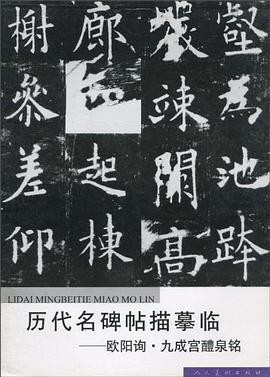 壑為池跨
巖竦闕高
廊起棟
榭參差仰
LIDAI MINGBEITIE MIAO MO LIN
历代名碑帖描摹临
——欧阳询·九成宫醴泉铭
人民美术出版社